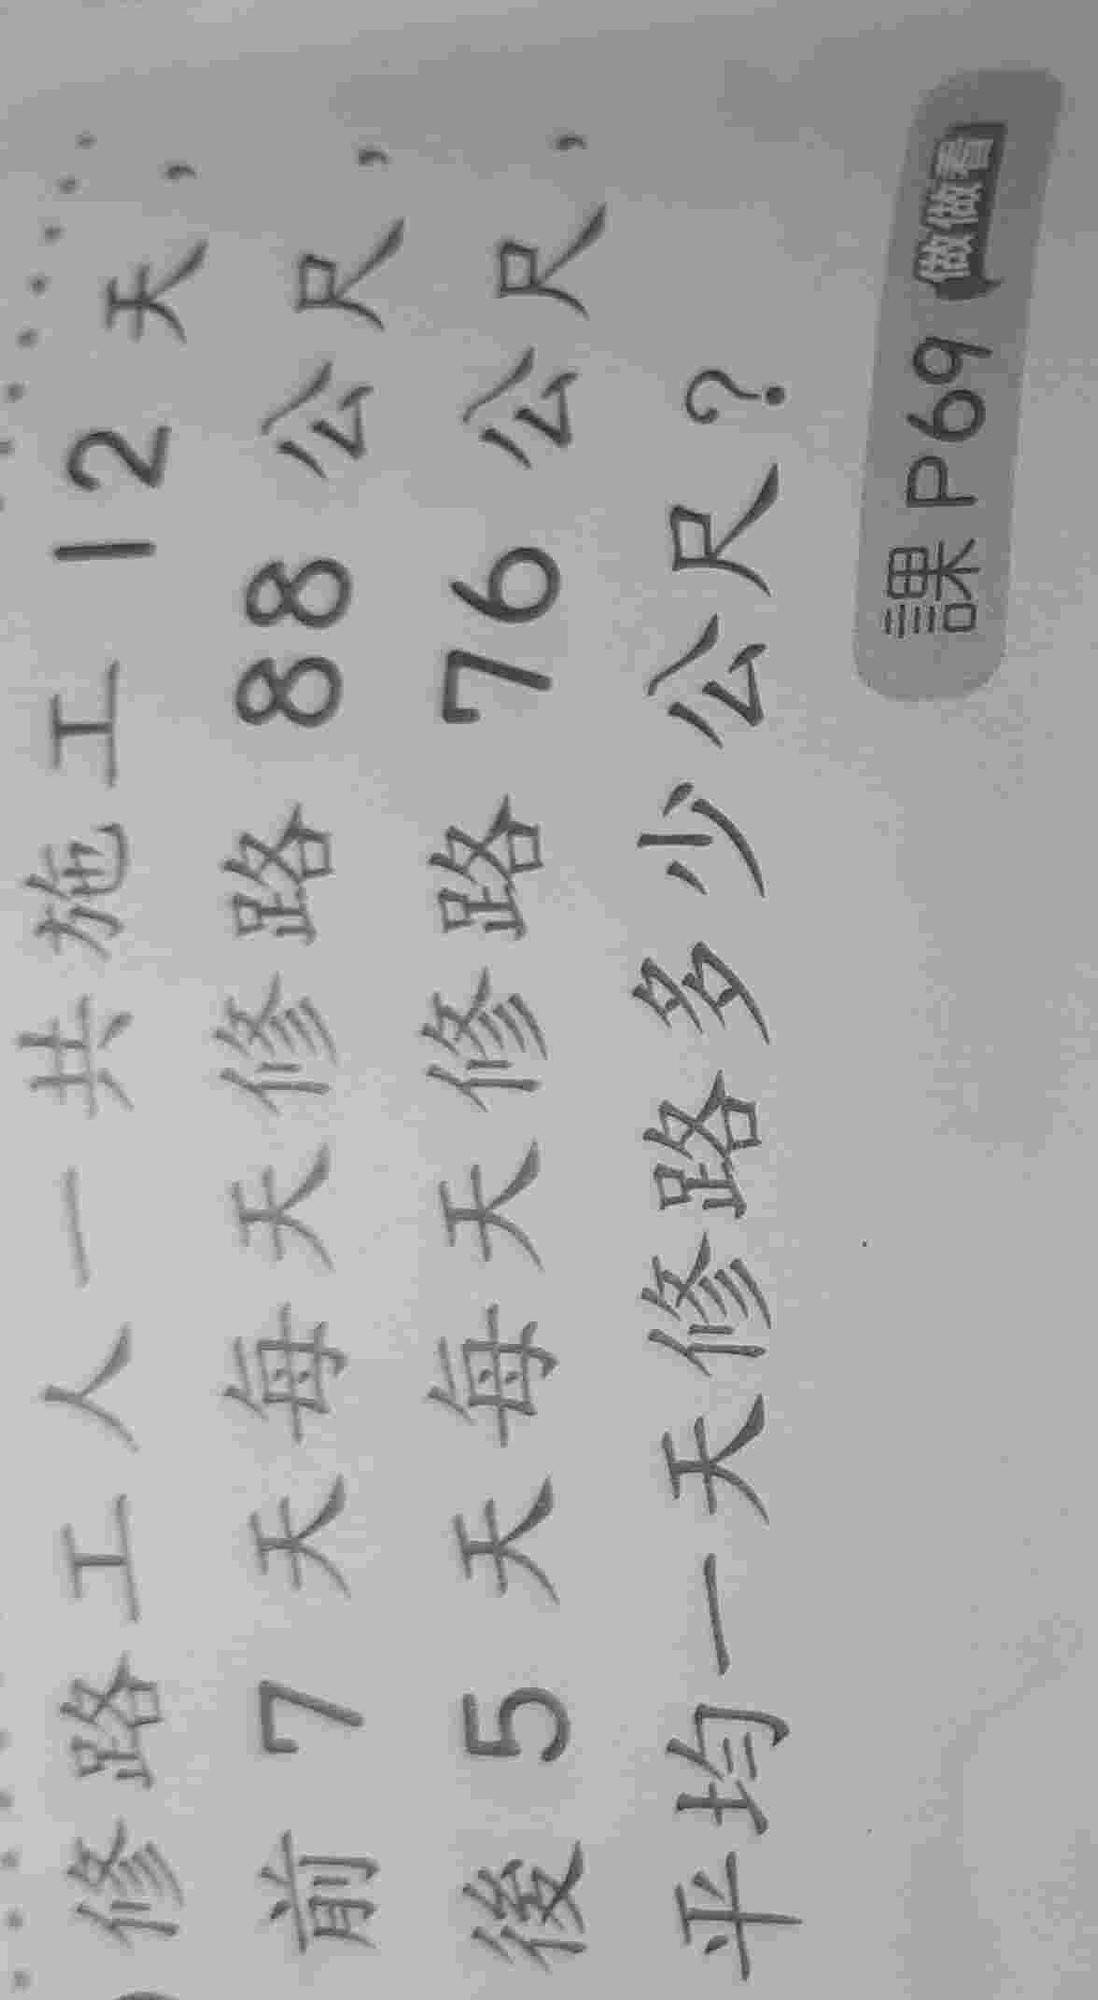 修路工人一共施工12天，
前7天每天修路88公尺，
後5天每天修路76公尺，
平均一天修路多少公尺？
課P69 做做看